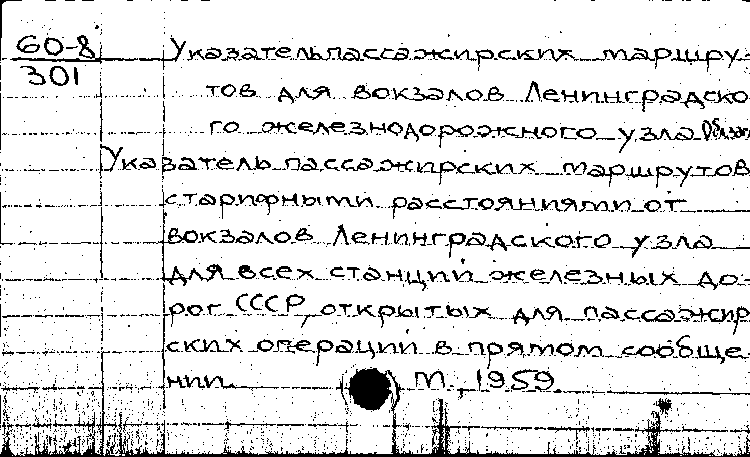 60-8
301
Указатель пассажирских маршру-
тов для вокзалов Ленинградско
го железнодорожного узла
Указатель пассажирских маршрутов
с тарифными расстояниями от
вокзалов Ленинградского узла
для всех станций железных до-
рог СССР, открытых для пассажир
ских операций в прямом сообще
нии. М., 1959.